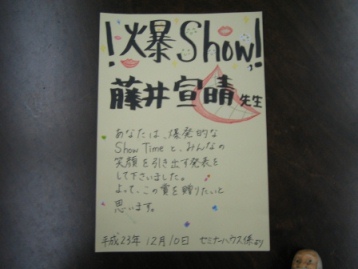 !爆Show!
藤井宣晴先生
あなたは、爆発的な
Show Timeと、みんなの
笑顔を引き出す発表を
して下さいました。
よって、この賞を贈りたいと
思います。
平成23年12月10日 セミナーハウス係より